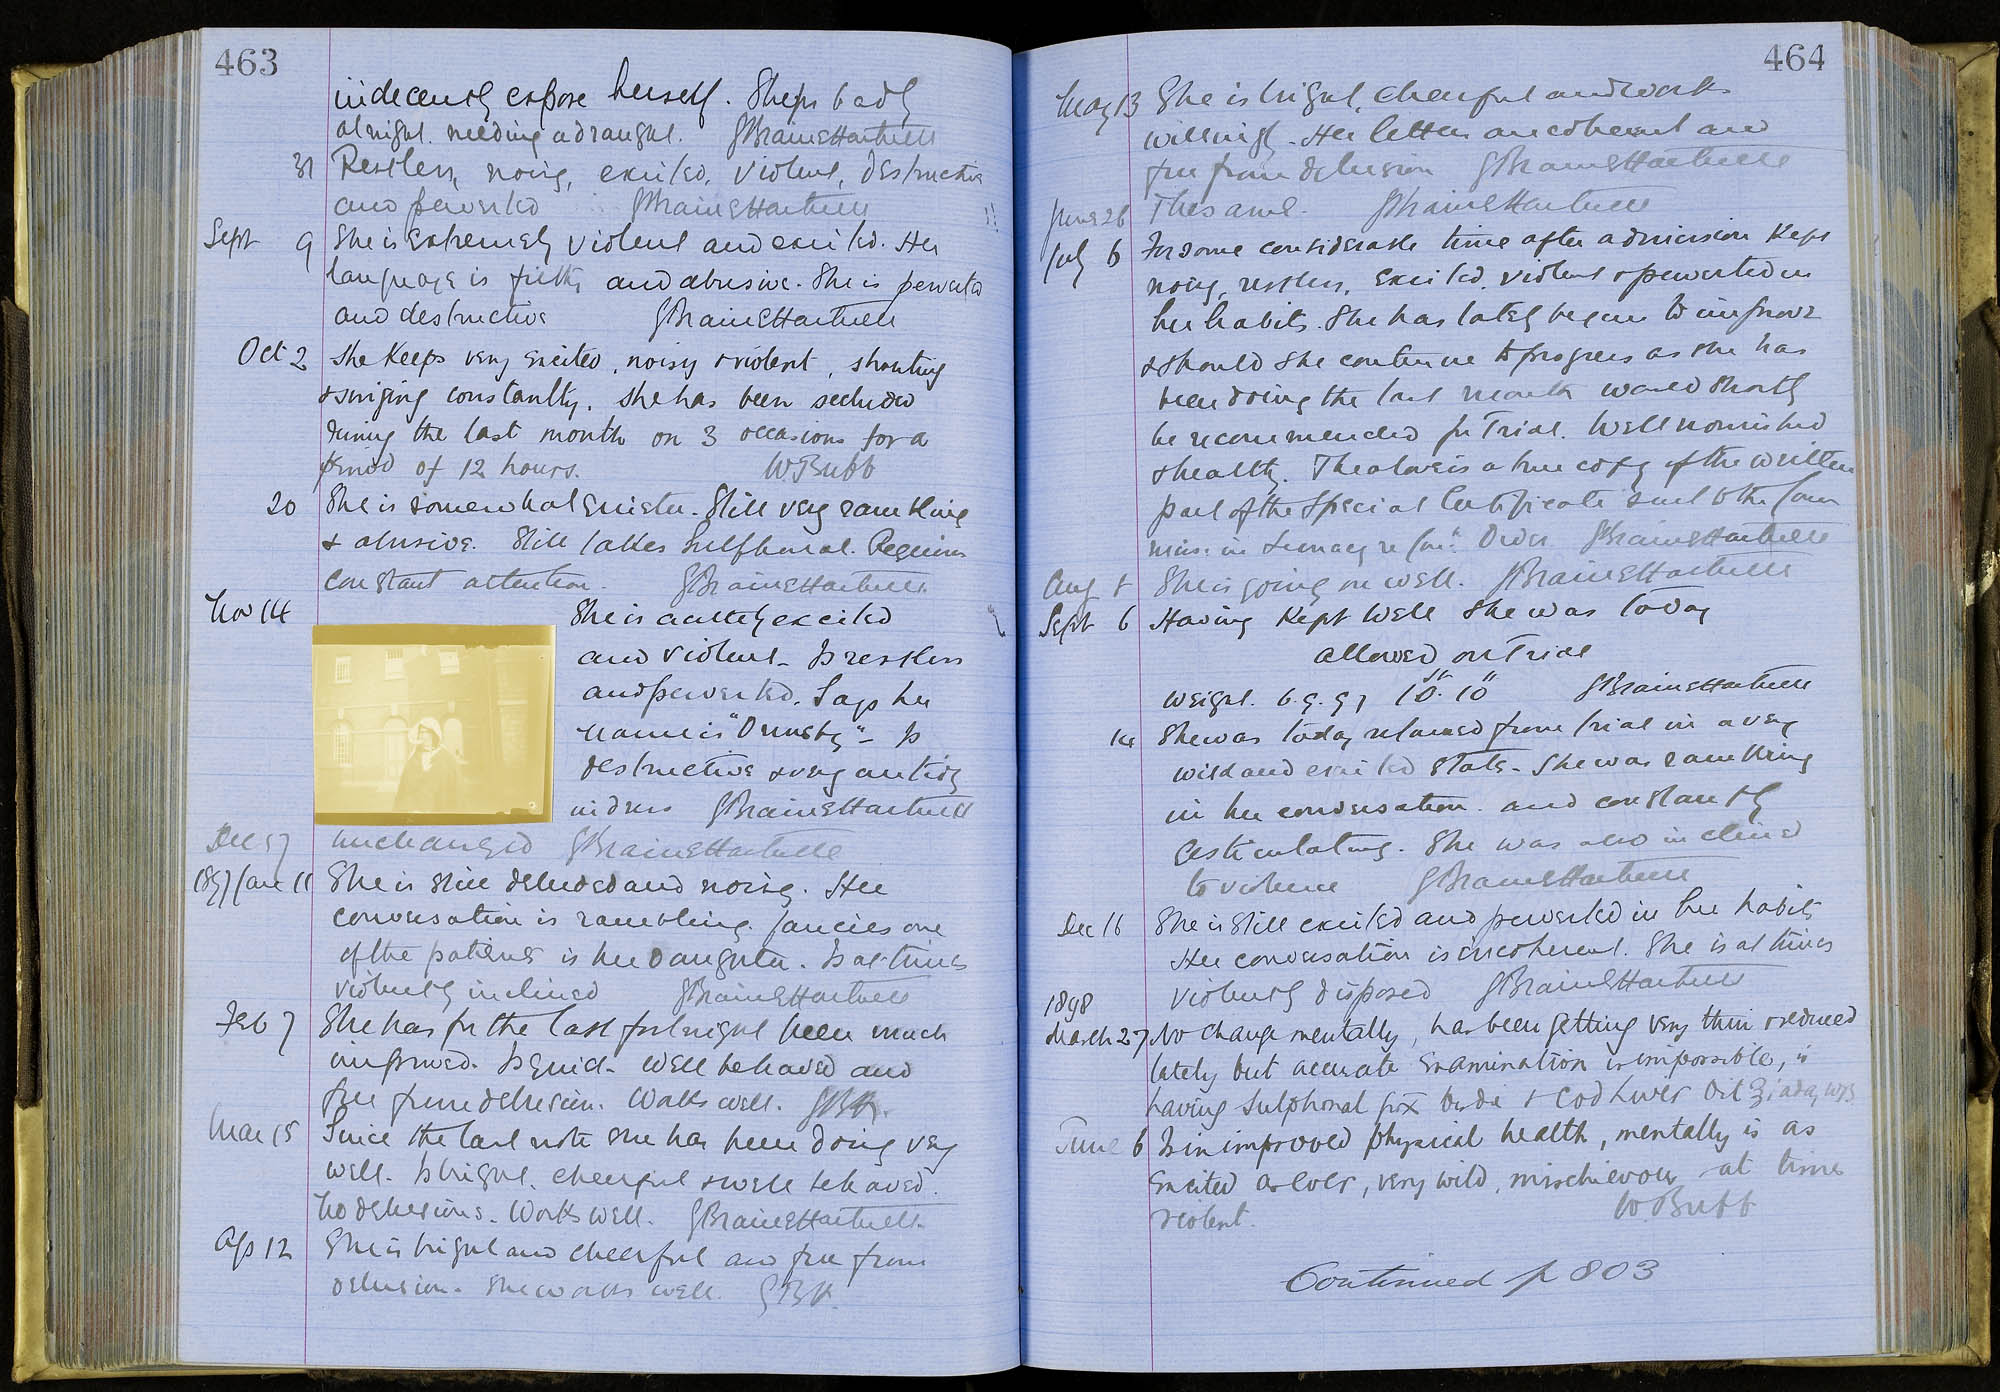 463
indecently expose herself. Sleeps badly
at night. needing a draught. G Braine Hartnell
31 Restless, noisy, excited, violent, destructive
and perverted G Braine Hartnell
Sept 9 She is extremely violent and excited. Her
language is filthy and abusive. She is perverted
and destructive G Braine Hartnell
Oct 2 She keeps very excited, noisy & violent, shouting
& singing constantly. She has been secluded
during the last month on 3 occasions for a
period of 12 hours. W. Bubb
20 She is somewhat quieter. Still very rambling
& abusive. Still takes Sulphonal. Requires
constant attention. G Braine Hartnell
Nov 14 She is acutely excited
and violent - Is restless
and perverted. Says her
name is "Ormsby" - Is
destructive & very untidy
in dress G Braine Hartnell
Dec 57 unchanged G Braine Hartnell
1897 Jan 11 She is still deluded and noisy. Her
conversation is rambling. fancies one
of the patients is her Daughter. Is at times
violently inclined G Braine Hartnell
Feb 7 She has for the last fortnight been much
improved. Is quiet. well behaved and
free from delusion. Works well. GBH.
Mar 15 Since the last note she has been doing very
well. Is bright, cheerful & well behaved.
No delusions. Works well. G Braine Hartnell.
Ap 12 She is bright and cheerful and free from
delusion. She works well. GBH.
464
May 13 She is bright, cheerful and works
willingly. Her letters are coherent and
free from delusion G Braine Hartnell
June 26 The same. G Braine Hartnell
July 6 For some considerable time after admission kept
noisy, restless, excited, violent & perverted in
her habits. She has lately begun to improve
& should she continue to progress as she has
been doing the last month would shortly
be recommended for Trial. Well nourished
& healthy. The above is a true copy of the written
part of the Special Certificate sent to the Com
miss: in Lunacy re Con: Order G Braine Hartnell
Aug 8 She is going on well. G Braine Hartnell
Sept 6 Having kept well she was today
allowed on Trial
Weight. 6.9.97 10st. 10" G Braine Hartnell
14 She was today returned from trial in a very
wild and excited state. She was rambling
in her conversation and constantly
gesticulating. She was also inclined
to violence G Braine Hartnell
Dec 16 She is still excited and perverted in her habits
Her conversation is incoherent. She is at times
violently disposed G Braine Hartnell
1898
March 27 No change mentally, has been getting very thin & reduced
lately but accurate examination is impossible, is
having Sulphonal grx & Cod Liver Oil
June 6 Is in improved physical health, mentally is as
excited as ever, very wild, mischievous at times
violent. W. Bubb
Continued p 803